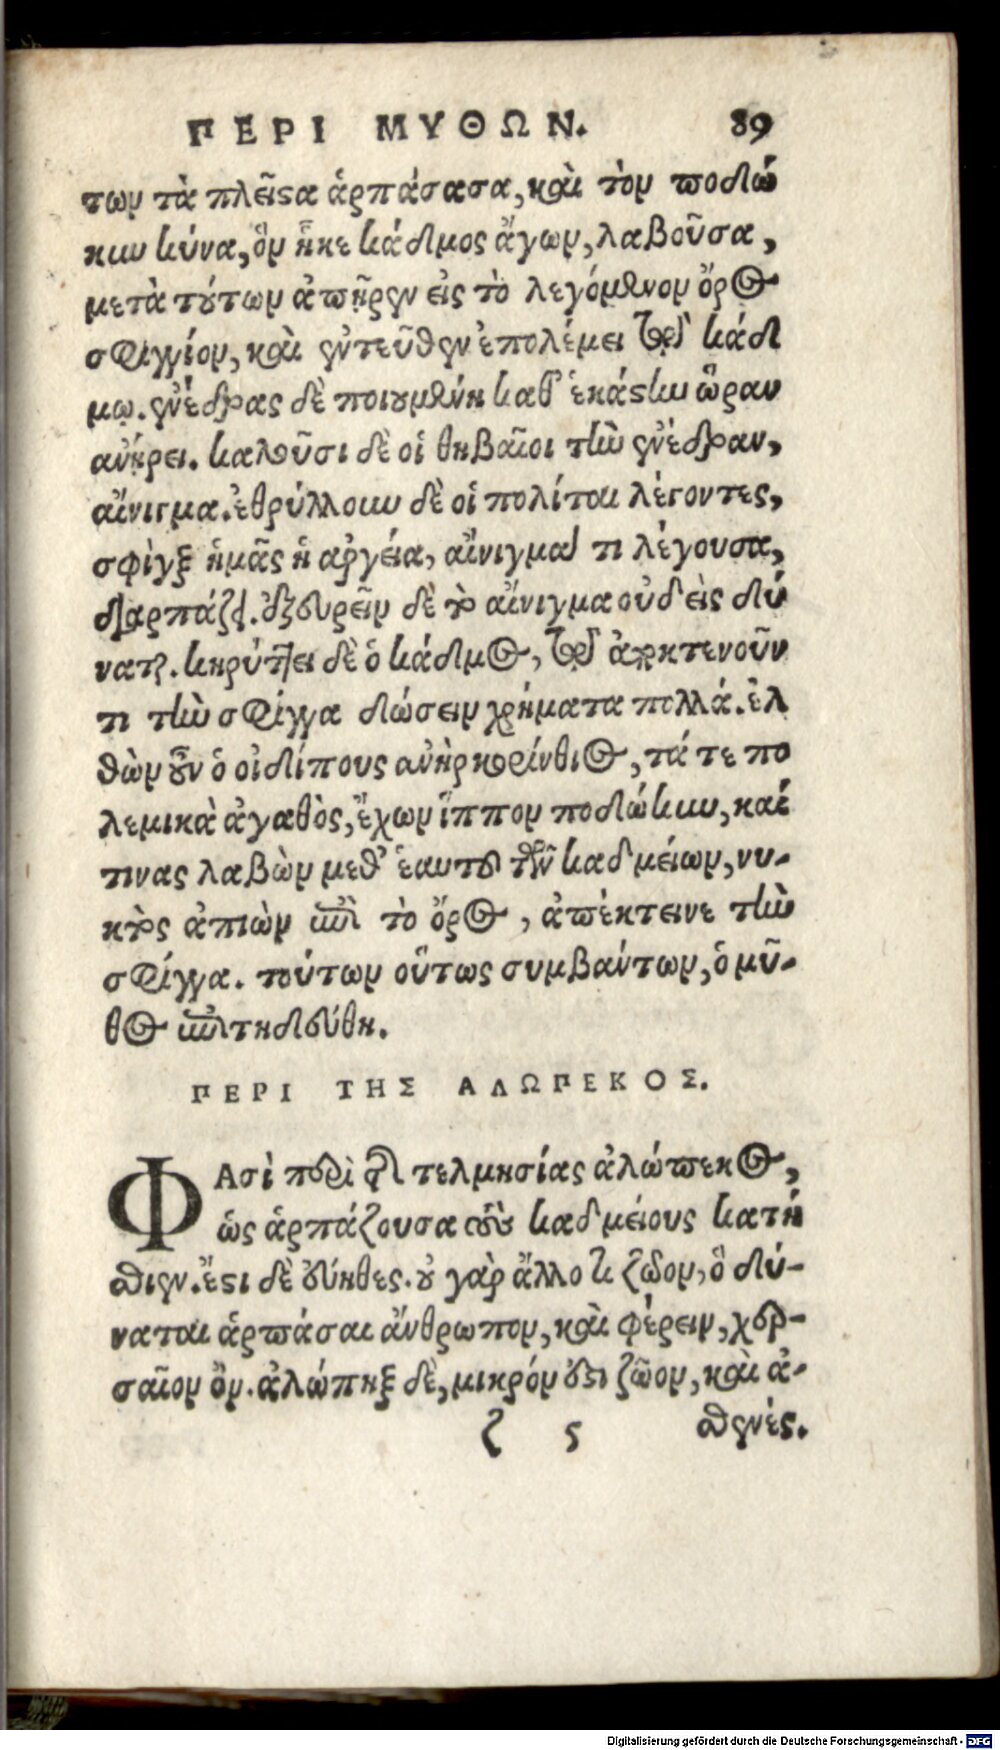 ΠΕΡΙ ΜΥΘΩΝ. 89
των τὰ πλεῖστα ἁρπάσασα, καὶ τὸν ποδώ
κην κύνα, ὃν ἧκε κάδμος ἄγων, λαβοῦσα,
μετὰ τούτων ἀπῆρεν εἰς τὸ λεγόμενον ὄρος
σφίγγιον, καὶ ἐντεῦθεν ἐπολέμει τῷ κάδ
μῳ. ἐνέδρας δὲ ποιουμένη καθ' ἑκάστην ὥραν
ἀνῄρει. καλοῦσι δὲ οἱ θηβαῖοι τὴν ἐνέδραν,
αἴνιγμα. ἐθρύλλουν δὲ οἱ πολίται λέγοντες,
σφίγξ ἡμᾶς ἡ ἀργεία, αἴνιγμά τι λέγουσα,
διαρπάζει. ἐξευρεῖν δὲ τὸ αἴνιγμα οὐδεὶς δύ
ναται. κηρύττει δὲ ὁ κάδμος, τῷ ἀποκτενοῦν
τι τὴν σφίγγα δώσειν χρήματα πολλά. ἐλ
θὼν οὖν ὁ οἰδίπους ἀνὴρ κορίνθιος, τά τε πο
λεμικὰ ἀγαθὸς, ἔχων ἵππον ποδώκην, καί
τινας λαβὼν μεθ' ἑαυτοῦ τῶν καδμείων, νυ-
κτὸς ἀπιὼν ἐπὶ τὸ ὄρος, ἀπέκτεινε τὴν
σφίγγα. τούτων οὕτως συμβάντων, ὁ μῦ-
θος ἐπετηδεύθη.
ΠΕΡΙ ΤΗΣ ΑΛΩΠΕΚΟΣ.
ΦΑσὶ περὶ τῆς τελμησίας ἀλώπεκος,
ὡς ἁρπάζουσα τοὺς καδμείους κατή
σθιεν. ἔστι δὲ εὔηθες. οὐ γὰρ ἄλλο τι ζῶον, ὃ δύ-
ναται ἁρπάσαι ἄνθρωπον, καὶ φέρειν, χερ-
σαῖον ὄν. ἀλώπηξ δὲ, μικρόν ἐστι ζῶον, καὶ ἀ-
ζ 5 σθενές.